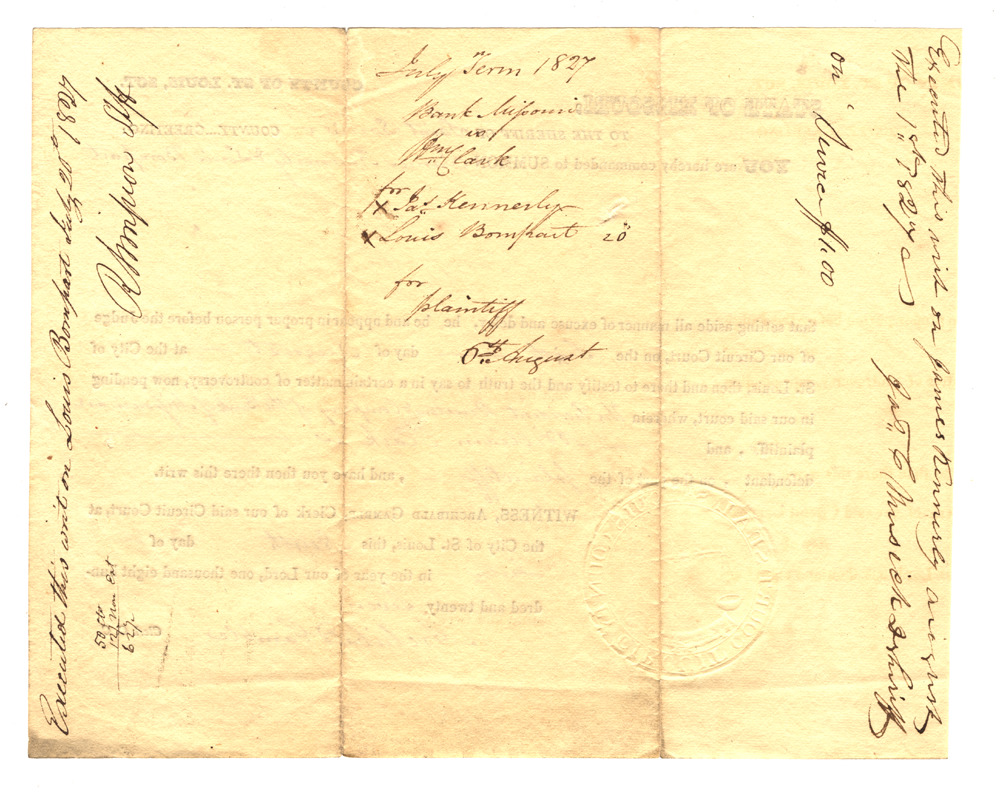 July Term 1827
Bank Missouri
vs
Wm Clark
for
x Jas Kennerly
x Louis Bompart 20
for
plaintiff
6th August
Executed this writ on James Kennerly august
the 1st 1827
Jno C Musick D Shriff
on Service $1.00
Executed this writ on Louis Bompart July 20th 1827
R Simpson Shff
50
12½
62½
STATE OF MISSOURI,
COUNTY OF ST. LOUIS, SCT.
TO THE SHERIFF
COUNTY...GREETING:
YOU are hereby commanded to SUMMON
that setting aside all manner of excuse and delay, he be and appear in proper person before the Judge
of our Circuit Court, on the day of at the City of
St. Louis, then and there to testify and the truth to say in a certain matter of controversy, now pending
in our said court, wherein
plaintiff , and
defendant , of the , and have you then there this writ.
WITNESS, ARCHIBALD GAMBLE, Clerk of our said Circuit Court, at
the City of St. Louis, this day of
in the year of our Lord, one thousand eight hun-
dred and twenty